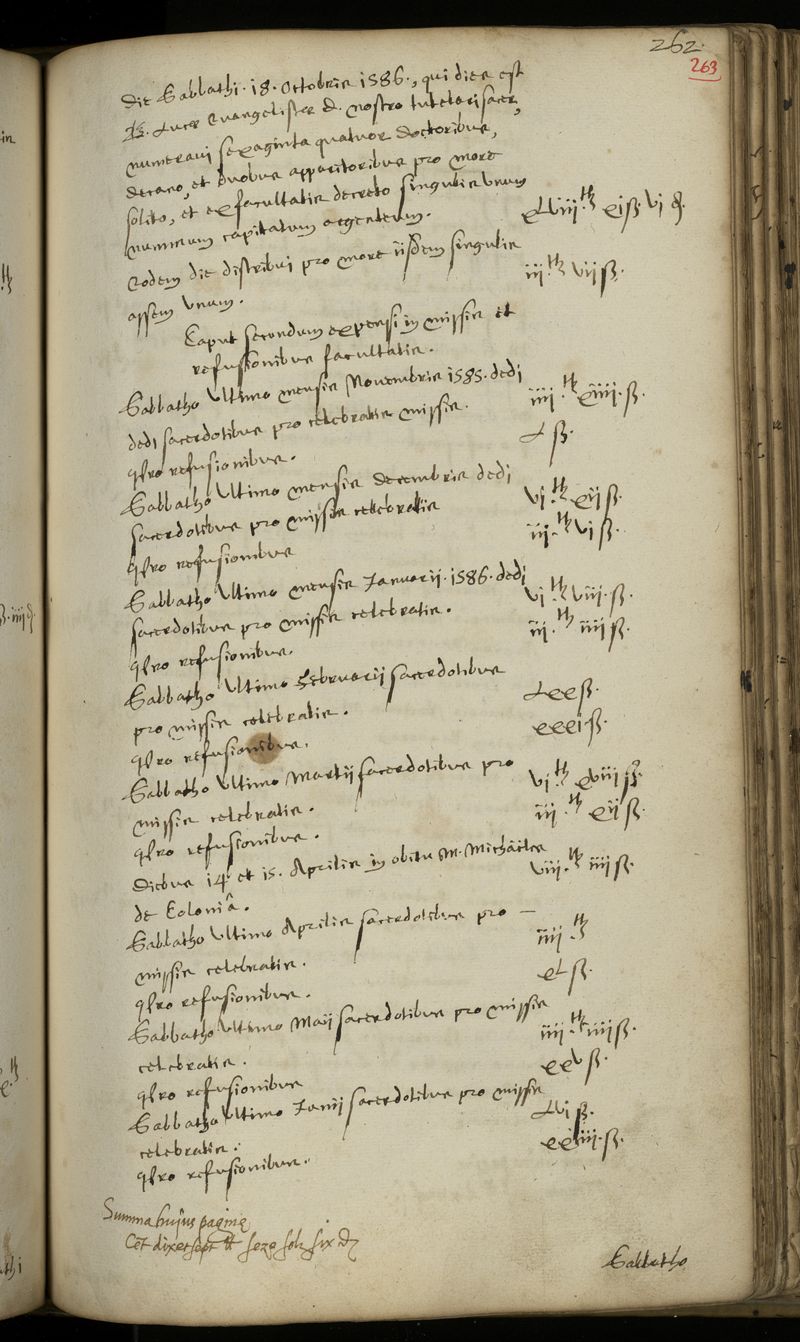 262.
263
Die Sabbathi .18. Octobris 1586., qui dies est
B. Lucæ Evangelistæ D. nostro tutelari sacer,
numeravi sexaginta quatuor doctoribus,
decano, et duobus apparitoribus pro more
solito, et ex facultatis decreto singulis unum
nummum capitatum argenteum. xLviii ₶ xiß vi d.
Eodem die distribui pro more iisdem singulis
assem unum. iii ₶ vii ß.
Caput secundum expensi in missis et
refusionibus facultatis.
Sabbatho ultimo mensis Novembris 1585. dedi
dedi sacerdotibus pro celebratis missis. iiii ₶ xiiii ß.
pro refusionibus. L ß.
Sabbatho ultimo mensis decembris dedi
sacerdotibus pro missis celebratis vi ₶ xii ß.
pro refusionibus iii ₶ vi ß.
Sabbatho ultimo mensis Januarii .1586. dedi
sacerdotibus pro missis celebratis. vi ₶ viii ß.
pro refusionibus. iii ₶ iiii ß.
Sabbatho ultimo Februarii sacerdotibus
pro missis celebratis. Lxx ß.
pro refusionibus. xxxi ß.
Sabbatho ultimo Martii sacerdotibus pro
missis celebratis. vi ₶ xviii ß.
pro refusionibus. iii ₶ xii ß.
Diebus 14 et 15. Aprilis in obitu M. Michäelis
de Coloniâ. viii ₶ iiii ß.
Sabbatho ultimo Aprilis sacerdotibus pro —
missis celebratis. iiii ₶
pro refusionibus. xL ß.
Sabbatho ultimo Maii sacerdotibus pro missis
celebratis. iiii ₶ iiii ß.
pro refusionibus xxv ß.
Sabbatho ultimo Junii sacerdotibus pro missis
celebratis. Lvi ß.
pro refusionibus. xxiii ß.
Summa hujus paginę
Cēt dix et sept ₶ seze solz six d
Sabbatho